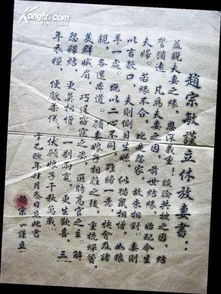 趙宗敏謹立休放妻書:
蓋說夫妻之緣，恩深義重！談論共被之因，結
誓幽遠。凡為夫妻之因，前世結緣，始配今生
夫婦。若緣不合，比是怨家，故來相對；妻則
以言數口，夫則側目生嫌，似貓鼠相憎，如狼
羊一處。既以二心不同，難歸一意，快會及諸
親，各還本道。願妻娘子相離之後，重梳蟬鬢，
美裙娥眉，巧逞窈窕之姿，選聘高官之主。解
怨釋結，更莫相憎。一別兩寬，更生歡喜。三
年衣糧，便獻柔儀。伏願娘子千秋萬歲。
于乙年肆月叁日立此書
趙宗謹立